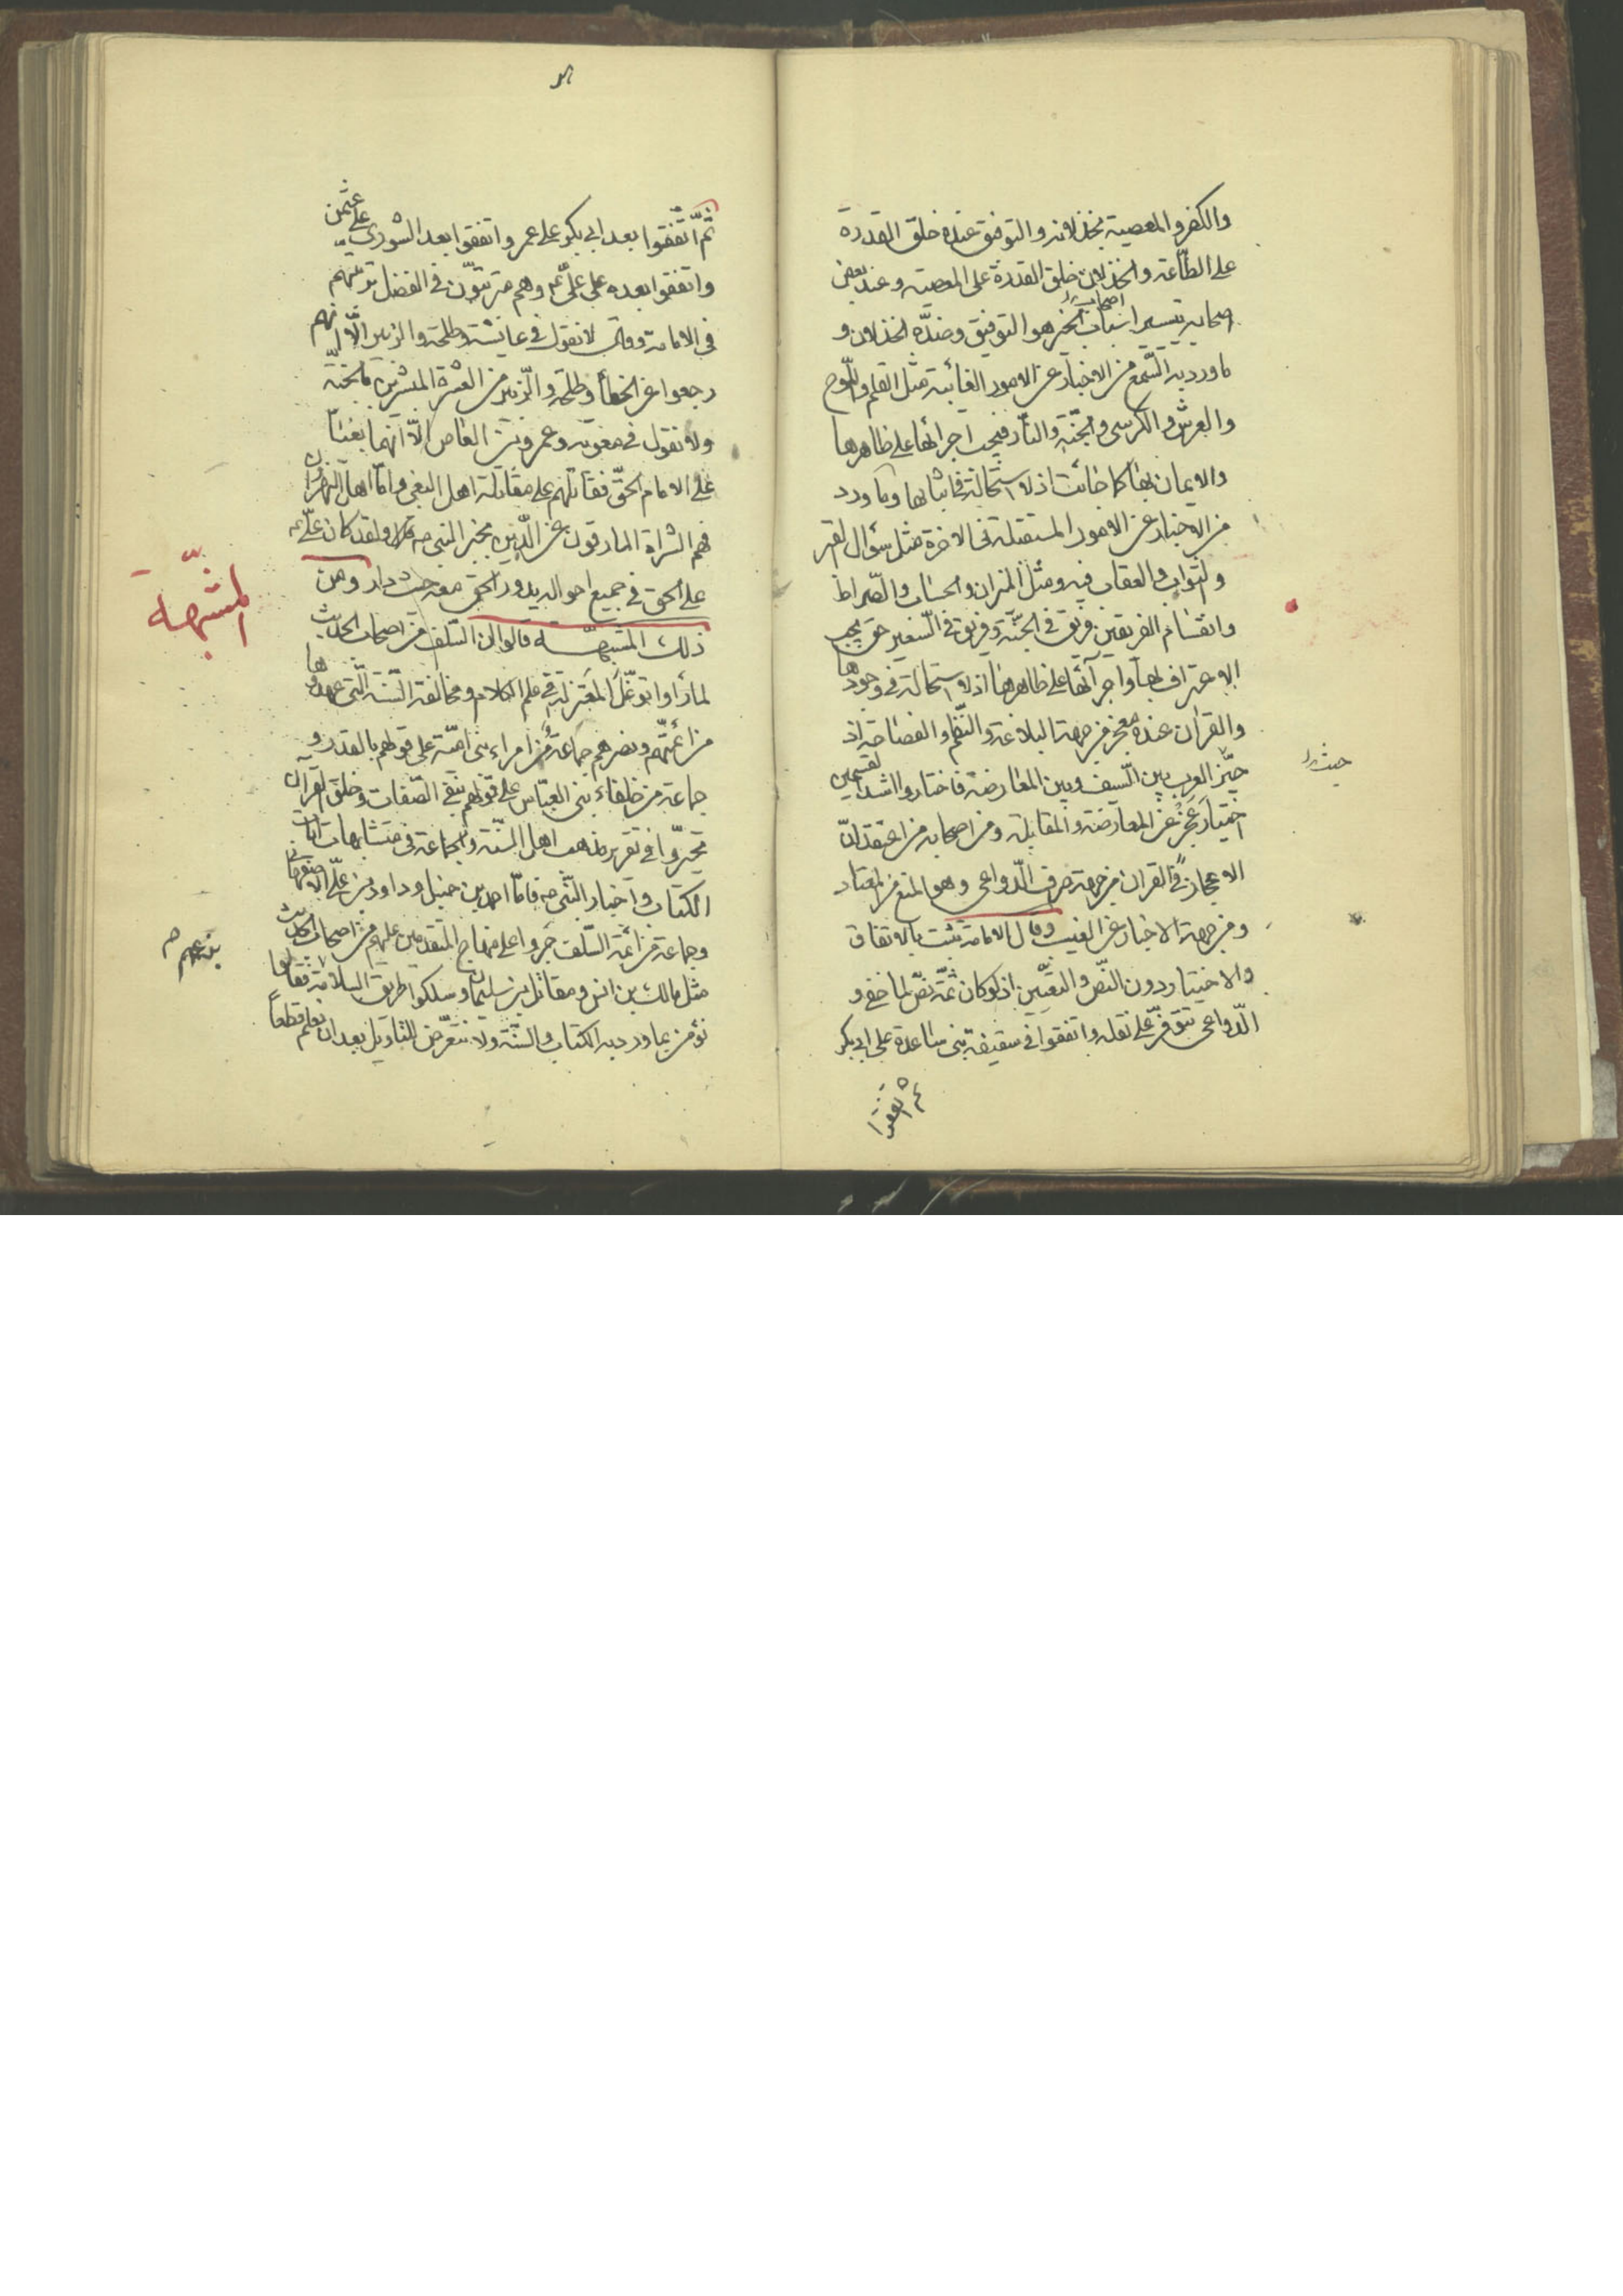 والكفر والمعصية بخذلانه والتوفيق عنده خلق القدرة
على الطاعة والخذلان خلق القدرة على المعصية وعند بعض
اصحابه تيسير اسباب الخير هو التوفيق وضدّه الخذلان و
ما ورد به السّمع من الاخبار عن الامور الغائبة مثل القلم واللّوح
والعرش والكرسى والجنّة والنّار فيجب اجرائها على ظاهرها
والايمان بها كما جائت اذ لا استحالة فى اثباتها وما ورد
من الاخبار عن الامور المستقبلة فى الاخرة مثل سؤال القبر
والثواب والعقاب فيه ومثل الميزان والحساب والصّراط
وانقسام الفريقين فريق فى الجنّة وفريق فى السّعير حق يجب
الاعتراف بها واجرآئها على ظاهرها اذ لا استحالة فى وجودها
والقران عنده معجز من جهة البلاغة والنّظم والفصاحة اذ
خيّر العرب بين السّيف وبين المعارضة فاختاروا اشد القسمين
اختيار عجز عن المعارضة والمقابلة ومن اصحابه من اعتقد انّ
الاعجاز فى القران من جهة صرف الدّواعى وهو المنع من المعتاد
ومن جهة الاخبار عن الغيب وقال الامامة يثبت بالاتفاق
والاختيار دون النّص والتعيّين اذ لو كان ثمّة نصّ لما خفى و
الدّواعى تتوفّر على نقله واتفقوا فى سقيفة بنى ساعدة على ابى بكر
ثم اتفقوا
ثمّ اتّفقوا بعد ابى بكر على عمر واتفقوا بعد الشورى على عثمن
واتفقوا بعده على علىّ ع وهم مترتبّون فى الفضل ترتبهم
فى الامامة وقال لا نقول فى عايشة وطلحة والزبير الّا انهم
رجعوا عن الخطأ وطلحة والزّبير من العشرة المبشرين بالجنّة
ولا نقول فى معوية وعمرو بن العاص الّا انهما بغيا
على الامام الحقّ فقاتلهم على مقاتلة اهل البغى وامّا اهل النهروان
فهم الشراة المارقون عن الدّين بخبر النبى ص ولقد كان علىّ ع
على الحق فى جميع احواله يدور الحق معه حيث دار ومن
ذلك المشبهّة قالوا ان السّلف من اصحاب الحديث
لما رأوا توغّل المعتزلة فى علم الكلام ومخالفة السّنة الّتى عهدوها
من ائمتّهم ونصرهم جماعة من امراء بنى اميّة على قولهم بالقدر و
جماعة من خلفاء بنى العبّاس على قولهم بنفى الصّفات وخلق القرآن
تحيّروا فى تقرير مذهب اهل السنّة والجماعة فى متشابهات ايات
الكتاب واخبار النّبى ص فامّا احمد بن حنبل وداود بن علىّ الاصفهانى
وجماعة من ائمة السّلف جروا على منهاج المتقدمين عليهم من اصحاب الحديث
مثل مالك بن انس ومقاتل بن سليمان وسلكوا طريق السلامة فقالوا
نؤمن بما ورد به الكتاب والسنّة ولا نتعرّض للتاويل بعد ان نعلم قطعاً
المشبّهة